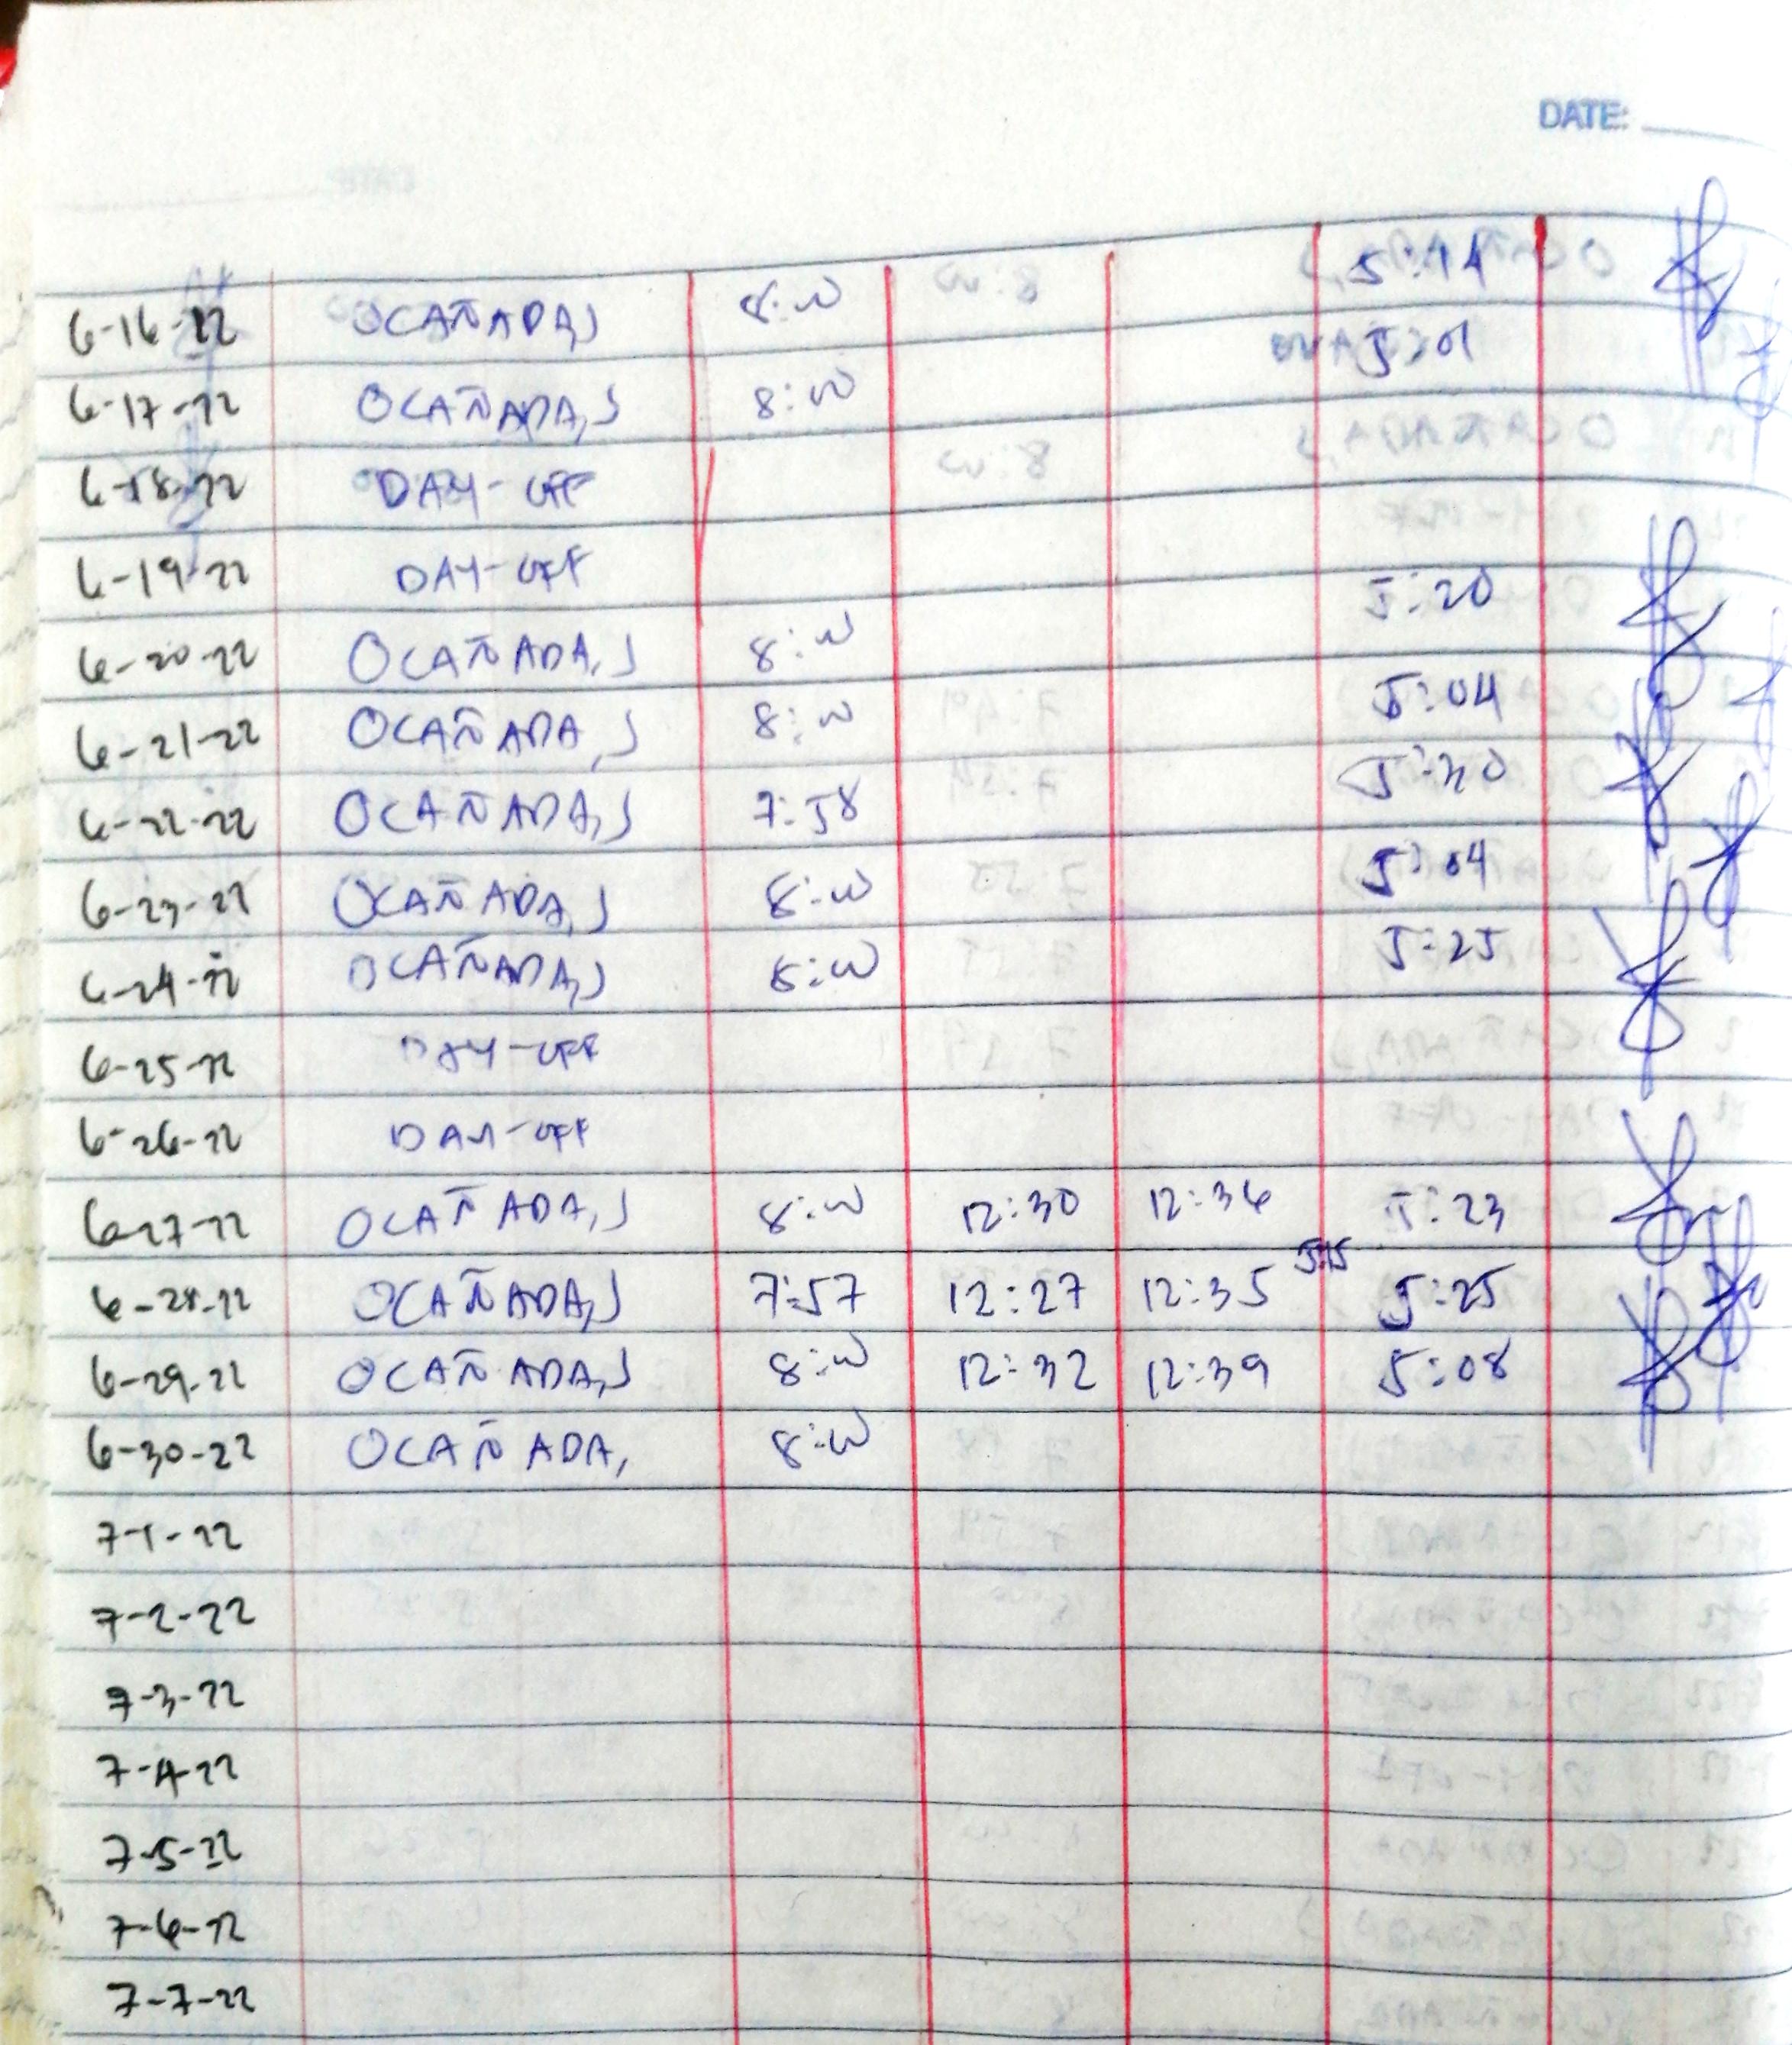 DATE:
6-16-22 OCAÑADA,J 8:00 5:14
6-17-22 OCAÑADA,J 8:00 5:01
6-18-22 DAY-OFF
6-19-22 DAY-OFF
6-20-22 OCAÑADA,J 8:00 5:20
6-21-22 OCAÑADA,J 8:00 5:04
6-22-22 OCAÑADA,J 7:58 5:30
6-23-22 OCAÑADA,J 8:00 5:04
6-24-22 OCAÑADA,J 8:00 5:25
6-25-22 DAY-OFF
6-26-22 DAY-OFF
6-27-22 OCAÑADA,J 8:00 12:30 12:36 5:23
6-28-22 OCAÑADA,J 7:57 12:27 12:35 5:15 5:25
6-29-22 OCAÑADA,J 8:00 12:32 12:39 5:08
6-30-22 OCAÑADA, 8:00
7-1-22
7-2-22
7-3-22
7-4-22
7-5-22
7-6-22
7-7-22